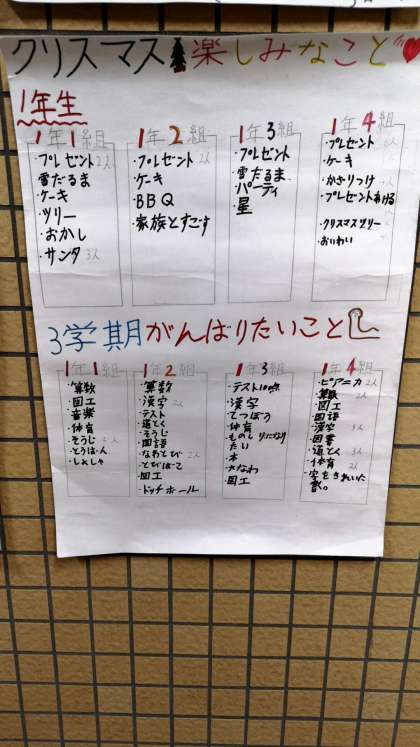 クリスマス楽しみなこと
1年生
1年1組
・プレゼント 2人
雪だるま
・ケーキ
・ツリー
・おかし
・サンタ 3人
1年2組
・プレゼント 2人
・ケーキ
・BBQ
・家族とすごす
1年3組
・プレゼント
・雪だるま
・パーティ
・星
1年4組
・プレゼント
・ケーキ
・かざりつけ
・プレゼントあける
・クリスマスツリー
・おいわい
3学期がんばりたいこと
1年1組
・算数
・図工
・音楽
・体育
・そうじ
・とうばん
1年2組
・算数
・漢字 2人
・テスト
・道とく
・そうじ
・国語
・なわとび 2人
・とびばこ
・図工
・ドッチボール
1年3組
・テスト100点
・漢字
・てつぼう
・体育
・ものしりになりたい
・本
・大なわ
・図工
1年4組
・ピアニカ 2人
・算数 2人
・図工
・国語
・漢字 3人
・図書
・道とく 3人
・体育 2人
・字をきれいに書く。